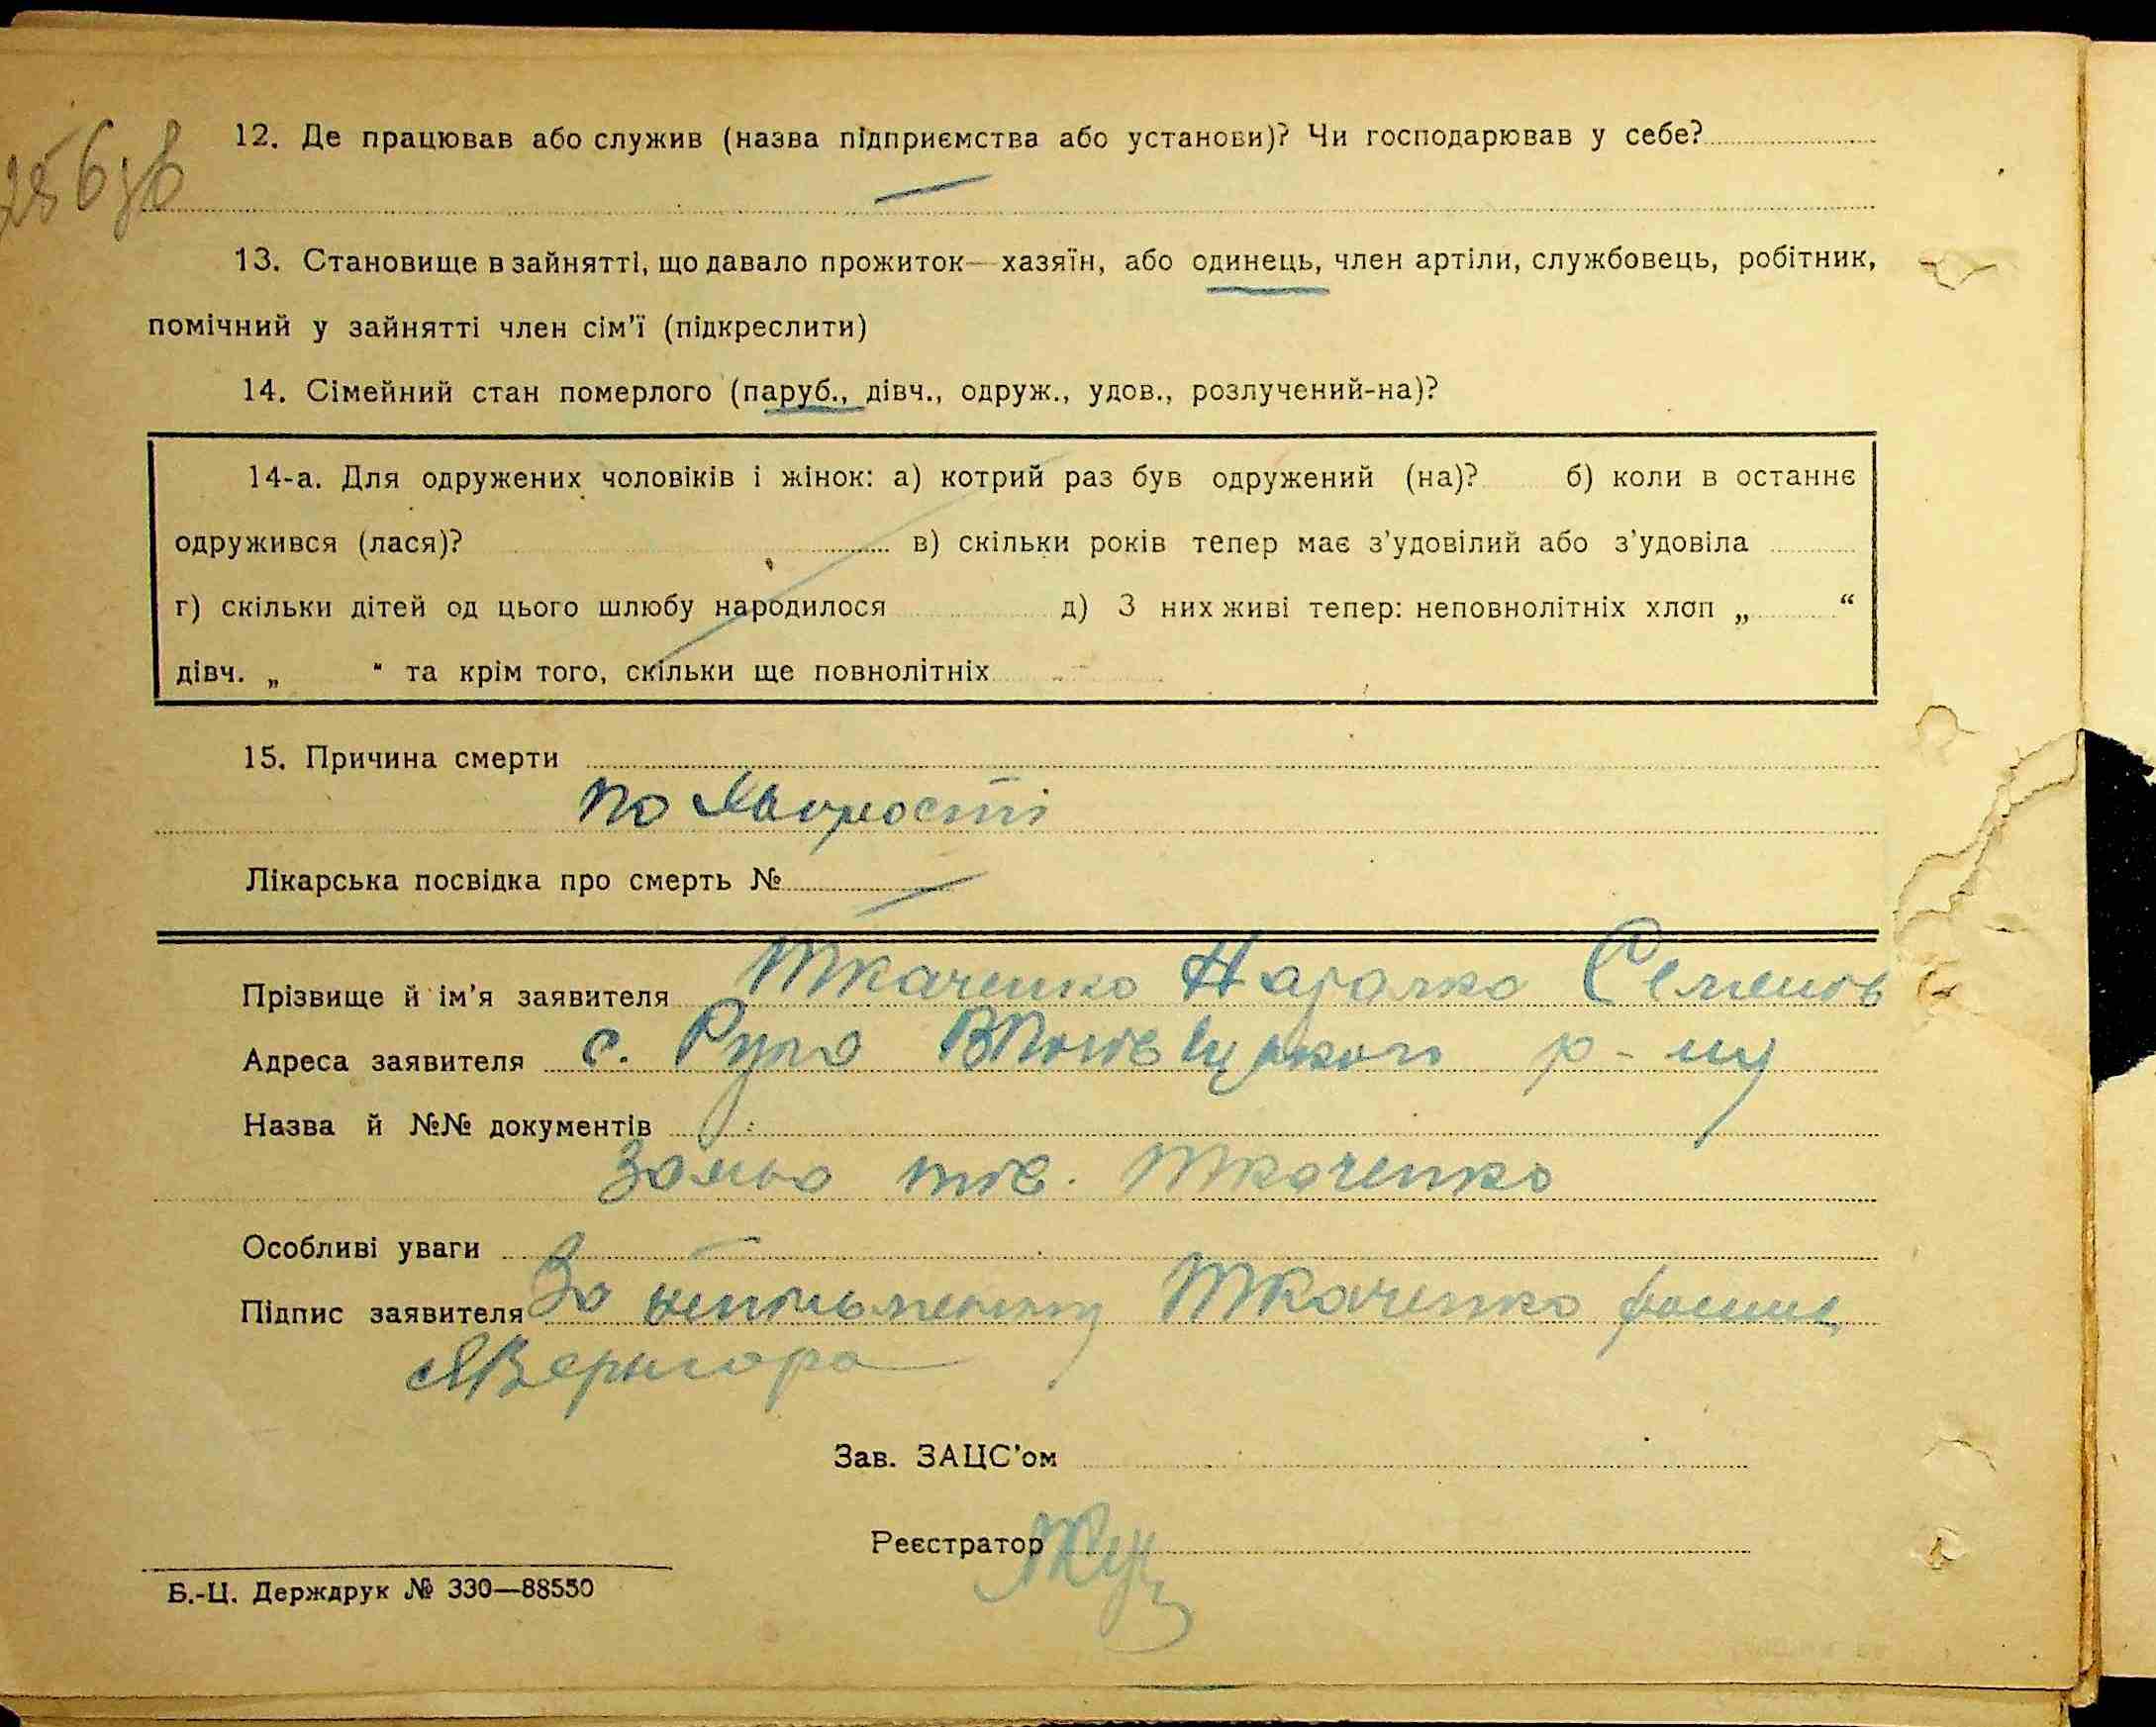 256зв
12. Де працював або служив (назва підприємства або установи)? Чи господарював у себе?
13. Становище в зайнятті, що давало прожиток—хазяїн, або одинець, член артіли, службовець, робітник,
помічний у зайнятті член сім'ї (підкреслити)
14. Сімейний стан померлого (паруб., дівч., одруж., удов., розлучений-на)?
14-а. Для одружених чоловіків і жінок: а) котрий раз був одружений (на)? б) коли в останнє
одружився (лася)? в) скільки років тепер має з'удовілий або з'удовіла
г) скільки дітей од цього шлюбу народилося д) З них живі тепер: неповнолітніх хлоп „ “
дівч. „ “ та крім того, скільки ще повнолітніх
15. Причина смерти
по
Лікарська посвідка про смерть №
Прізвище й ім'я заявителя Ткаченко
Адреса заявителя с. р-ну
Назва й №№ документів
тов. Ткаченко
Особливі уваги
Підпис заявителя За Ткаченко
Зав. ЗАЦС'ом
Реєстратор
Б.-Ц. Держдрук № 330—88550